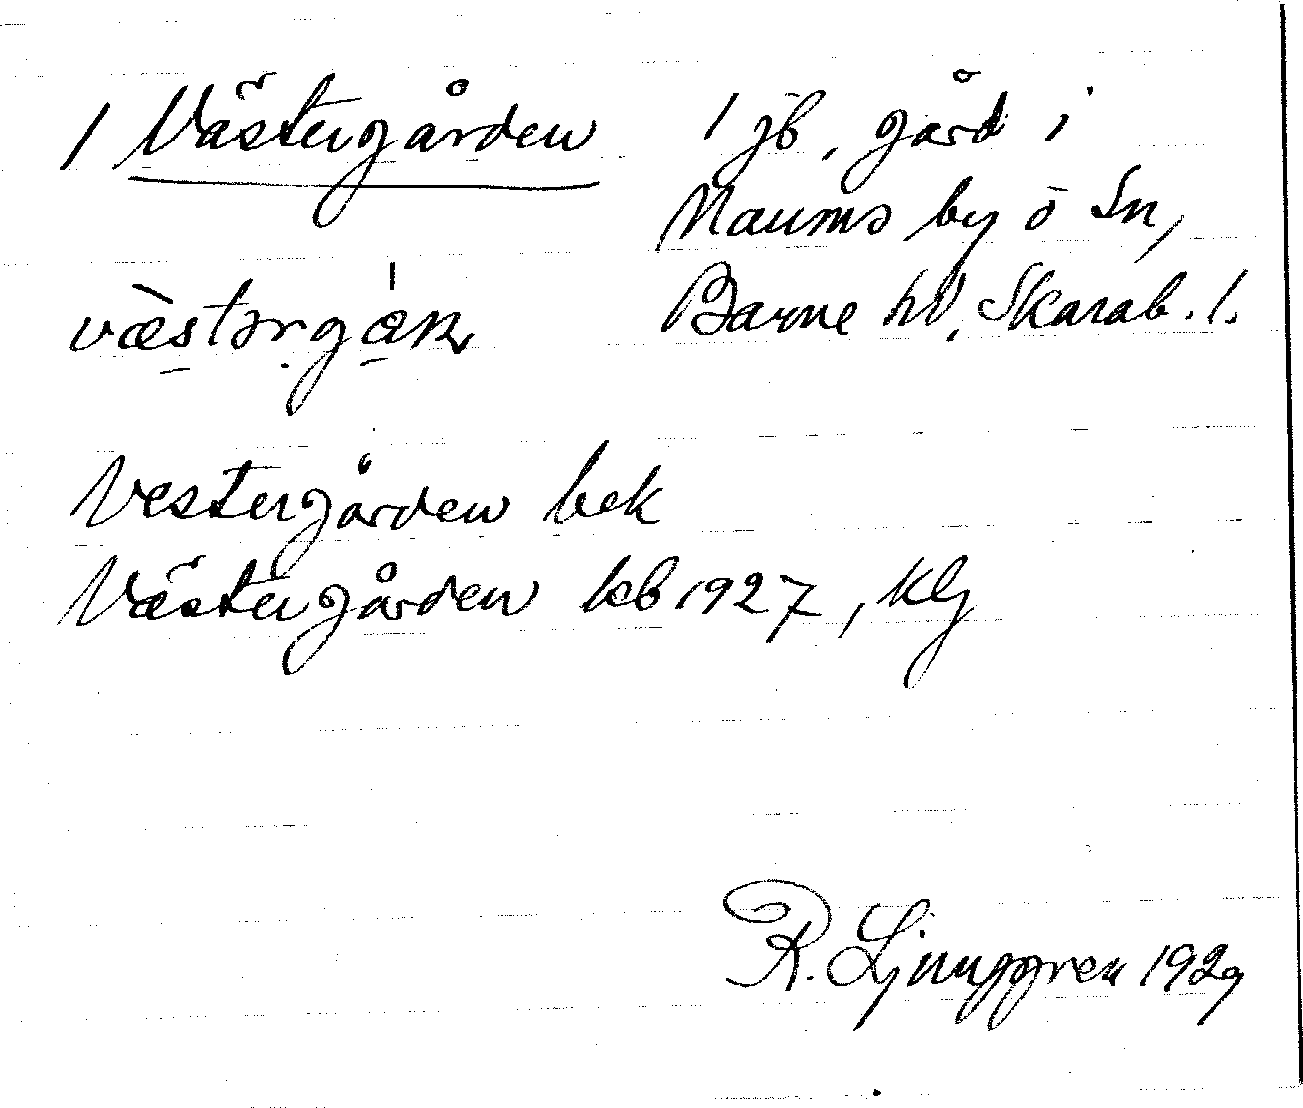 1 Västergården 1 jb, gård i
Naums by o Sn,
Barne hd, Skarab. l.
Vestergården bek
Västergården kb 1927, Klj
R. Ljunggren 1929